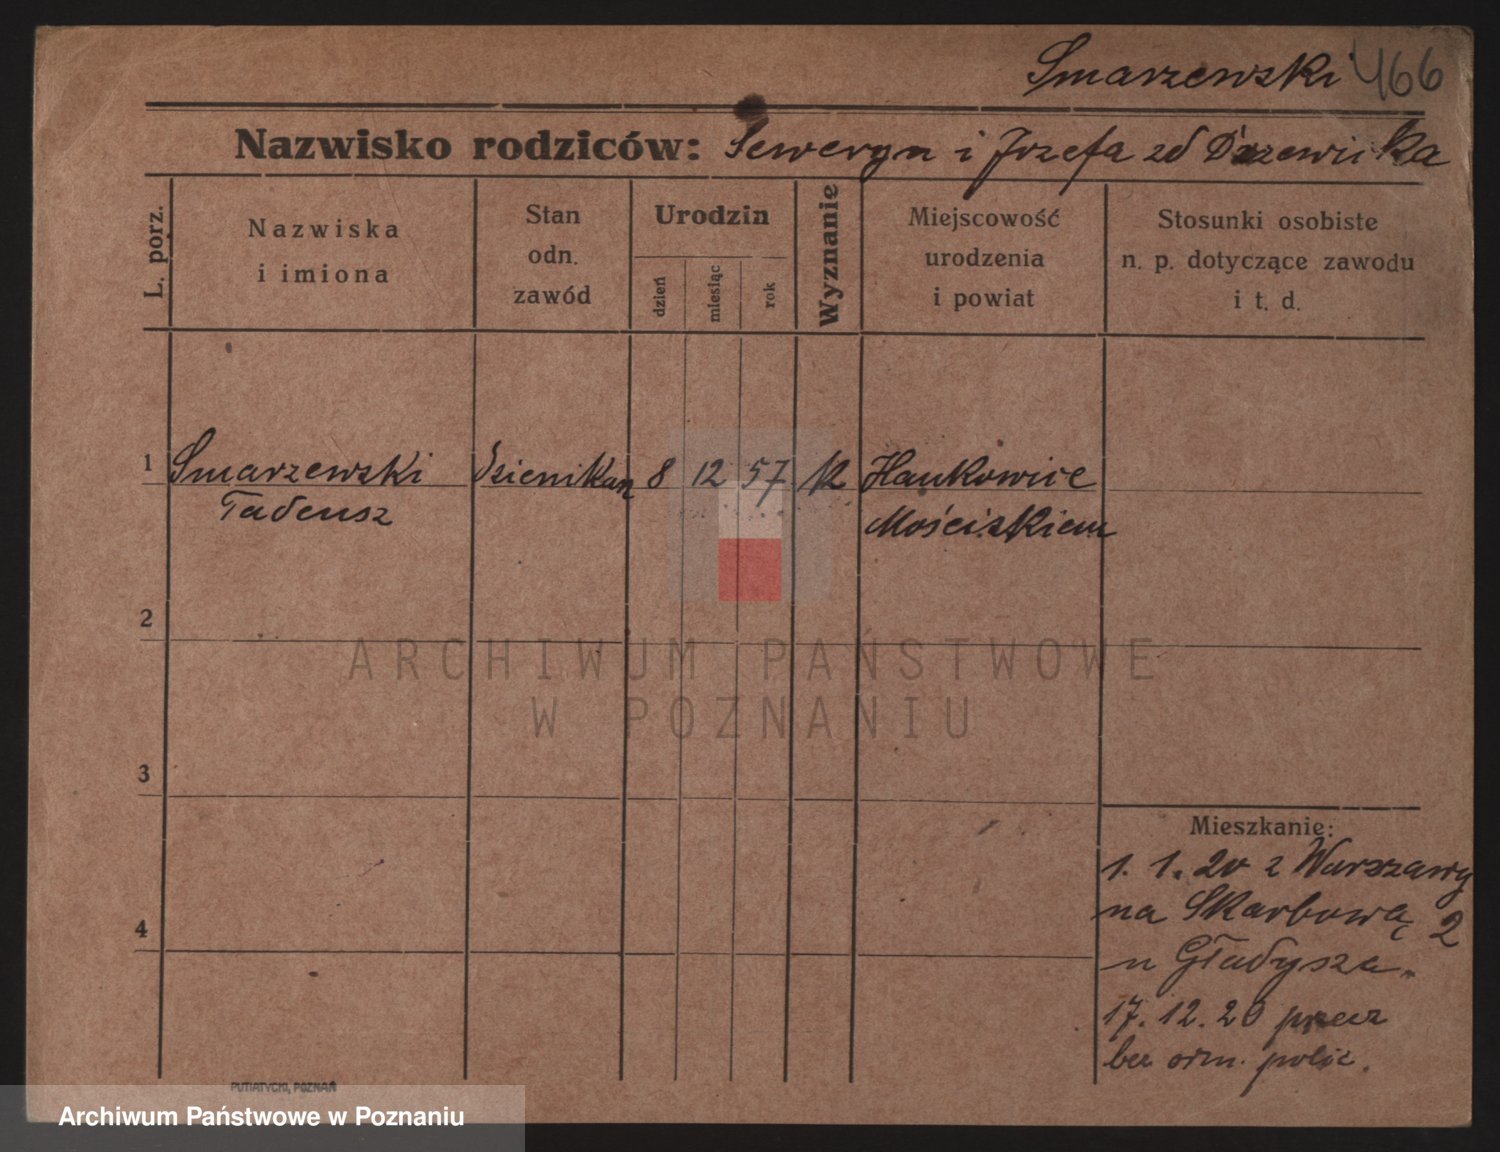 Smarzewski 466
Nazwisko rodziców: Seweryn i Józefa zd
L. porz.
Nazwiska
i imiona
Stan
odn.
zawód
Urodzin
dzień
miesiąc
rok
Wyznanie
Miejscowość
urodzenia
i powiat
Stosunki osobiste
n. p. dotyczące zawodu
i t. d.
1 Smarzewski dzienikarz 8 12 57 k Hankowice
Tadeusz Mościskiem
2
3
4
Mieszkanie:
1. 1. 20 z Warszawy
na Skarbową 2
u Gładysza.
17. 12. 20 precz
bez odm. polic.
PUTIATYCKI, POZNAŃ
ARCHIWUM PAŃSTWOWE
W POZNANIU
Archiwum Państwowe w Poznaniu